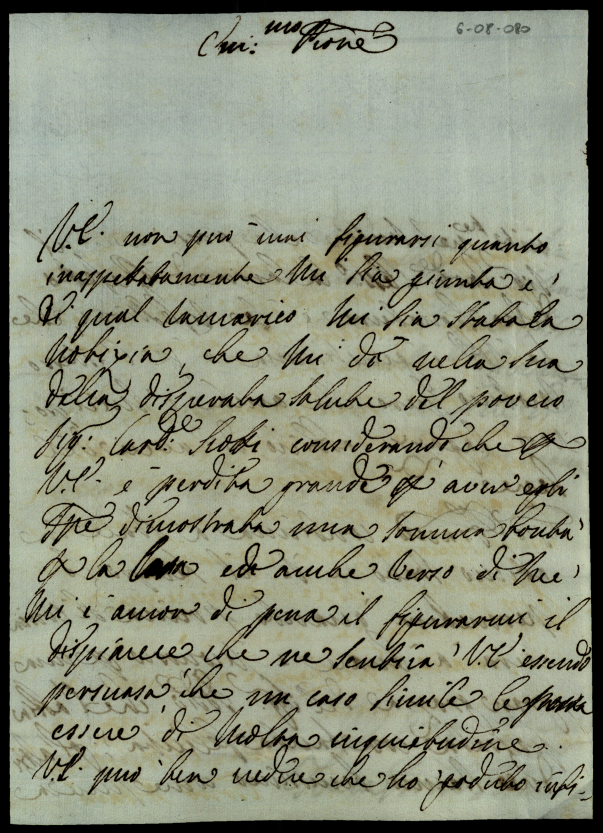 6-08-080
V.E. non può mai figurarsi quanto
inaspettatamente mi sia giunta e
di qual ramarico mi sia stata la
notizia, che mi dà nella sua
della disperata salute del povero
Sig.r Card.le considerando che
V.E. è perdita grande aver egli
dimostrata una somma bontà
la ed anche verso di me
mi è ancor di pena il figurarmi il
dispiacere che ne sentirà V.E. essendo
persuasa che un caso simile le possa
essere di molta inquietudine.
V.E. può ben vedere che ho goduto infi-